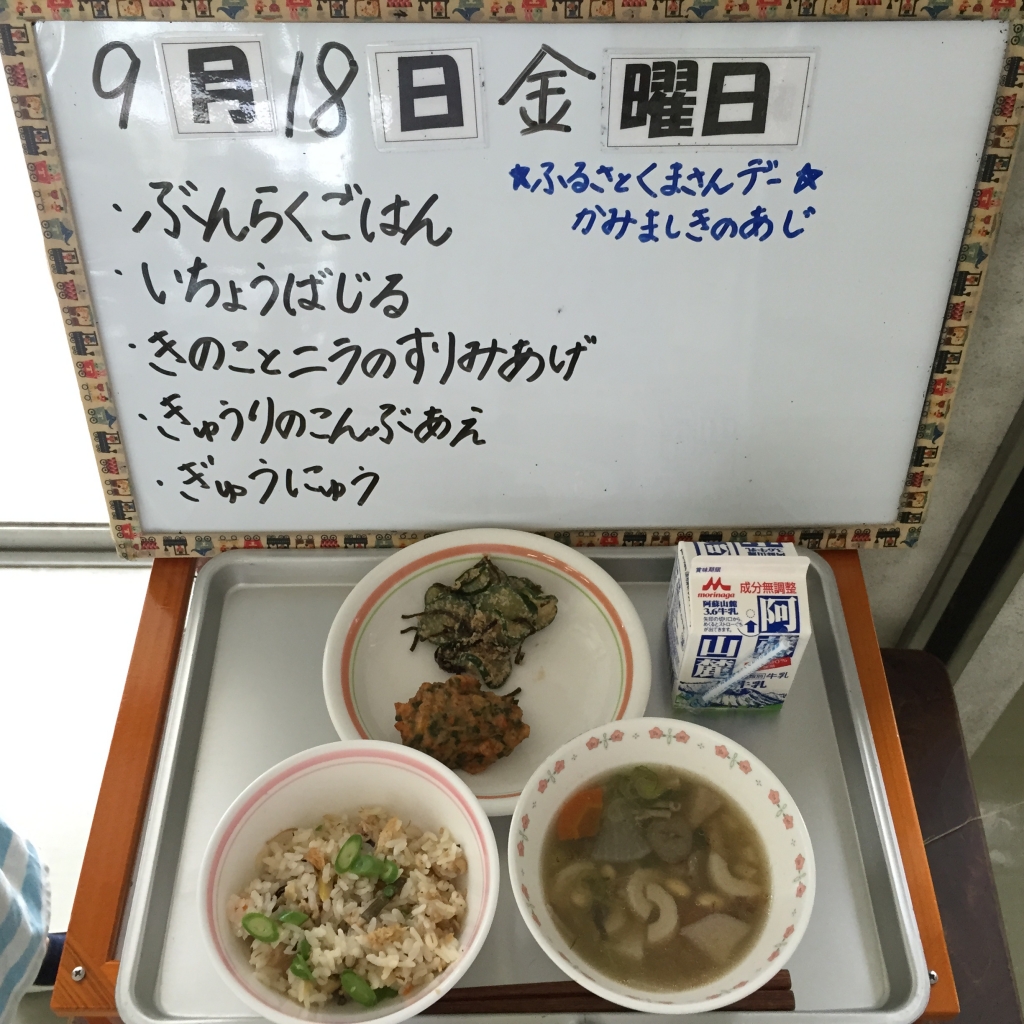 9月18日 金曜日
★ふるさとくまさんデー★
かみましきのあじ
・ぶんらくごはん
・いちょうばじる
・きのことニラのすりみあげ
・きゅうりのこんぶあえ
・ぎゅうにゅう
賞味期限
morinaga
成分無調整
阿蘇山麓
3.6牛乳
阿蘇
山麓
牛乳